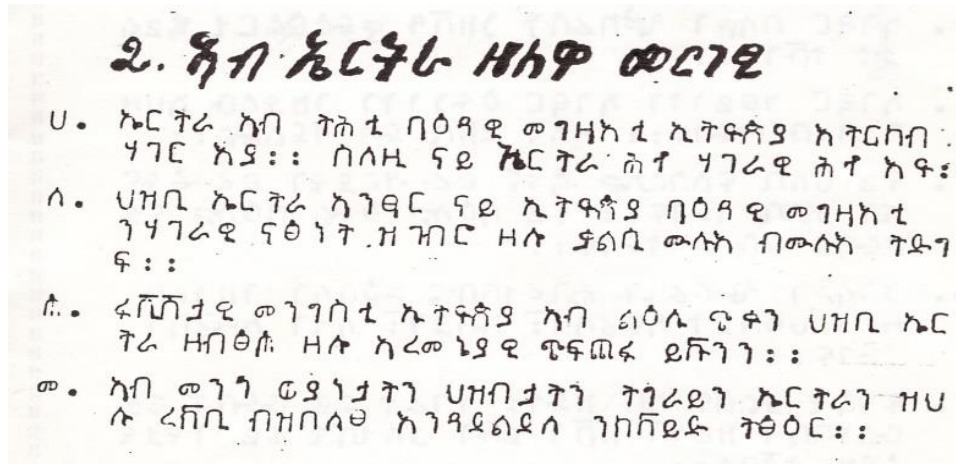 2. ኣብ ኤርትራ ዘለዋ መርገፂ
ሀ. ኤርትራ ኣብ ትሕቲ ባዕዳዊ መገዛእቲ ኢትዮጵያ እትርከብ
ሃገር እያ:: ስለዚ ናይ ኤርትራ ሕቶ ሃገራዊ ሕቶ እዩ:
ለ. ህዝቢ ኤርትራ አንፃር ናይ ኢትዮጵያ ባዕዳዊ መገዛእቲ
ንሃገራዊ ናፅነት ዝገብሮ ዘሎ ቃልሲ ሙሉእ ብሙሉእ ትድግ
ፍ::
ሐ. ፋሺሽታዊ መንግስቲ ኢትዮጵያ ኣብ ልዕሊ ጭቁን ህዝቢ ኤር
ትራ ዘብፅሖ ዘሎ ኣረመኔያዊ ጭፍጨፋ ይኹንን::
መ. ኣብ መንጎ ውያነታትን ህዝብታትን ትግራይን ኤርትራን ዝህ
ሉ ረሺቢ ብዝበለፀ እንዳደልደለ ንክኸይድ ትፅዕር::